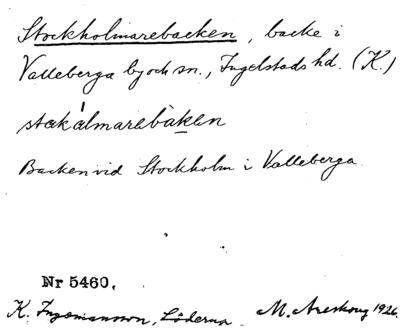 Stockholmarebacken, backe i
Valleberga by och sn., Ingelstads hd. (K.)
ståkålmarebàken
Backen vid Stockholm i Valleberga.
Nr 5460.
K. Ingemansson, Löderup M. Areskoug 1926.